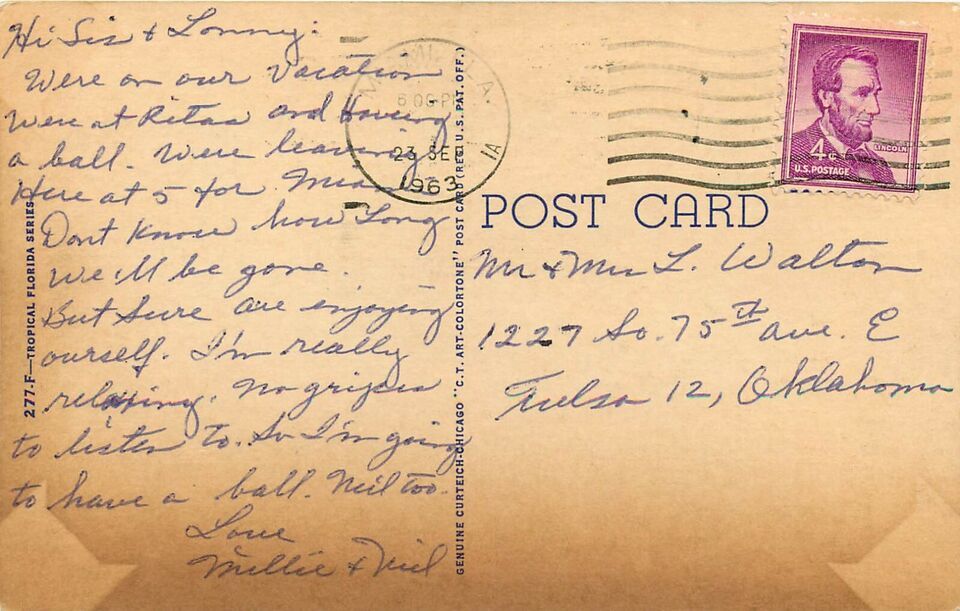 Hi Sis & Lonny:
Were on our Vacation
Were at Ritas and Having
a ball. Were leaving
Here at 5 for Miami
Dont know how Long
we'll be gone.
But sure are enjoying
ourself. I'm really
relaxing. No gripes
to listen to. So I'm going
to have a ball. Neil too.
Love
Millie & Neil
277-F—TROPICAL FLORIDA SERIES
GENUINE CURTEICH-CHICAGO "C.T. ART-COLORTONE" POST CARD (REG. U.S. PAT. OFF.)
MIAMI, FLA.
6 PM
23 SE
1963
1A
4¢
LINCOLN
U.S. POSTAGE
POST CARD
Mr & Mrs L. Walton
1227 So. 75th ave. E
Tulsa 12, Oklahoma